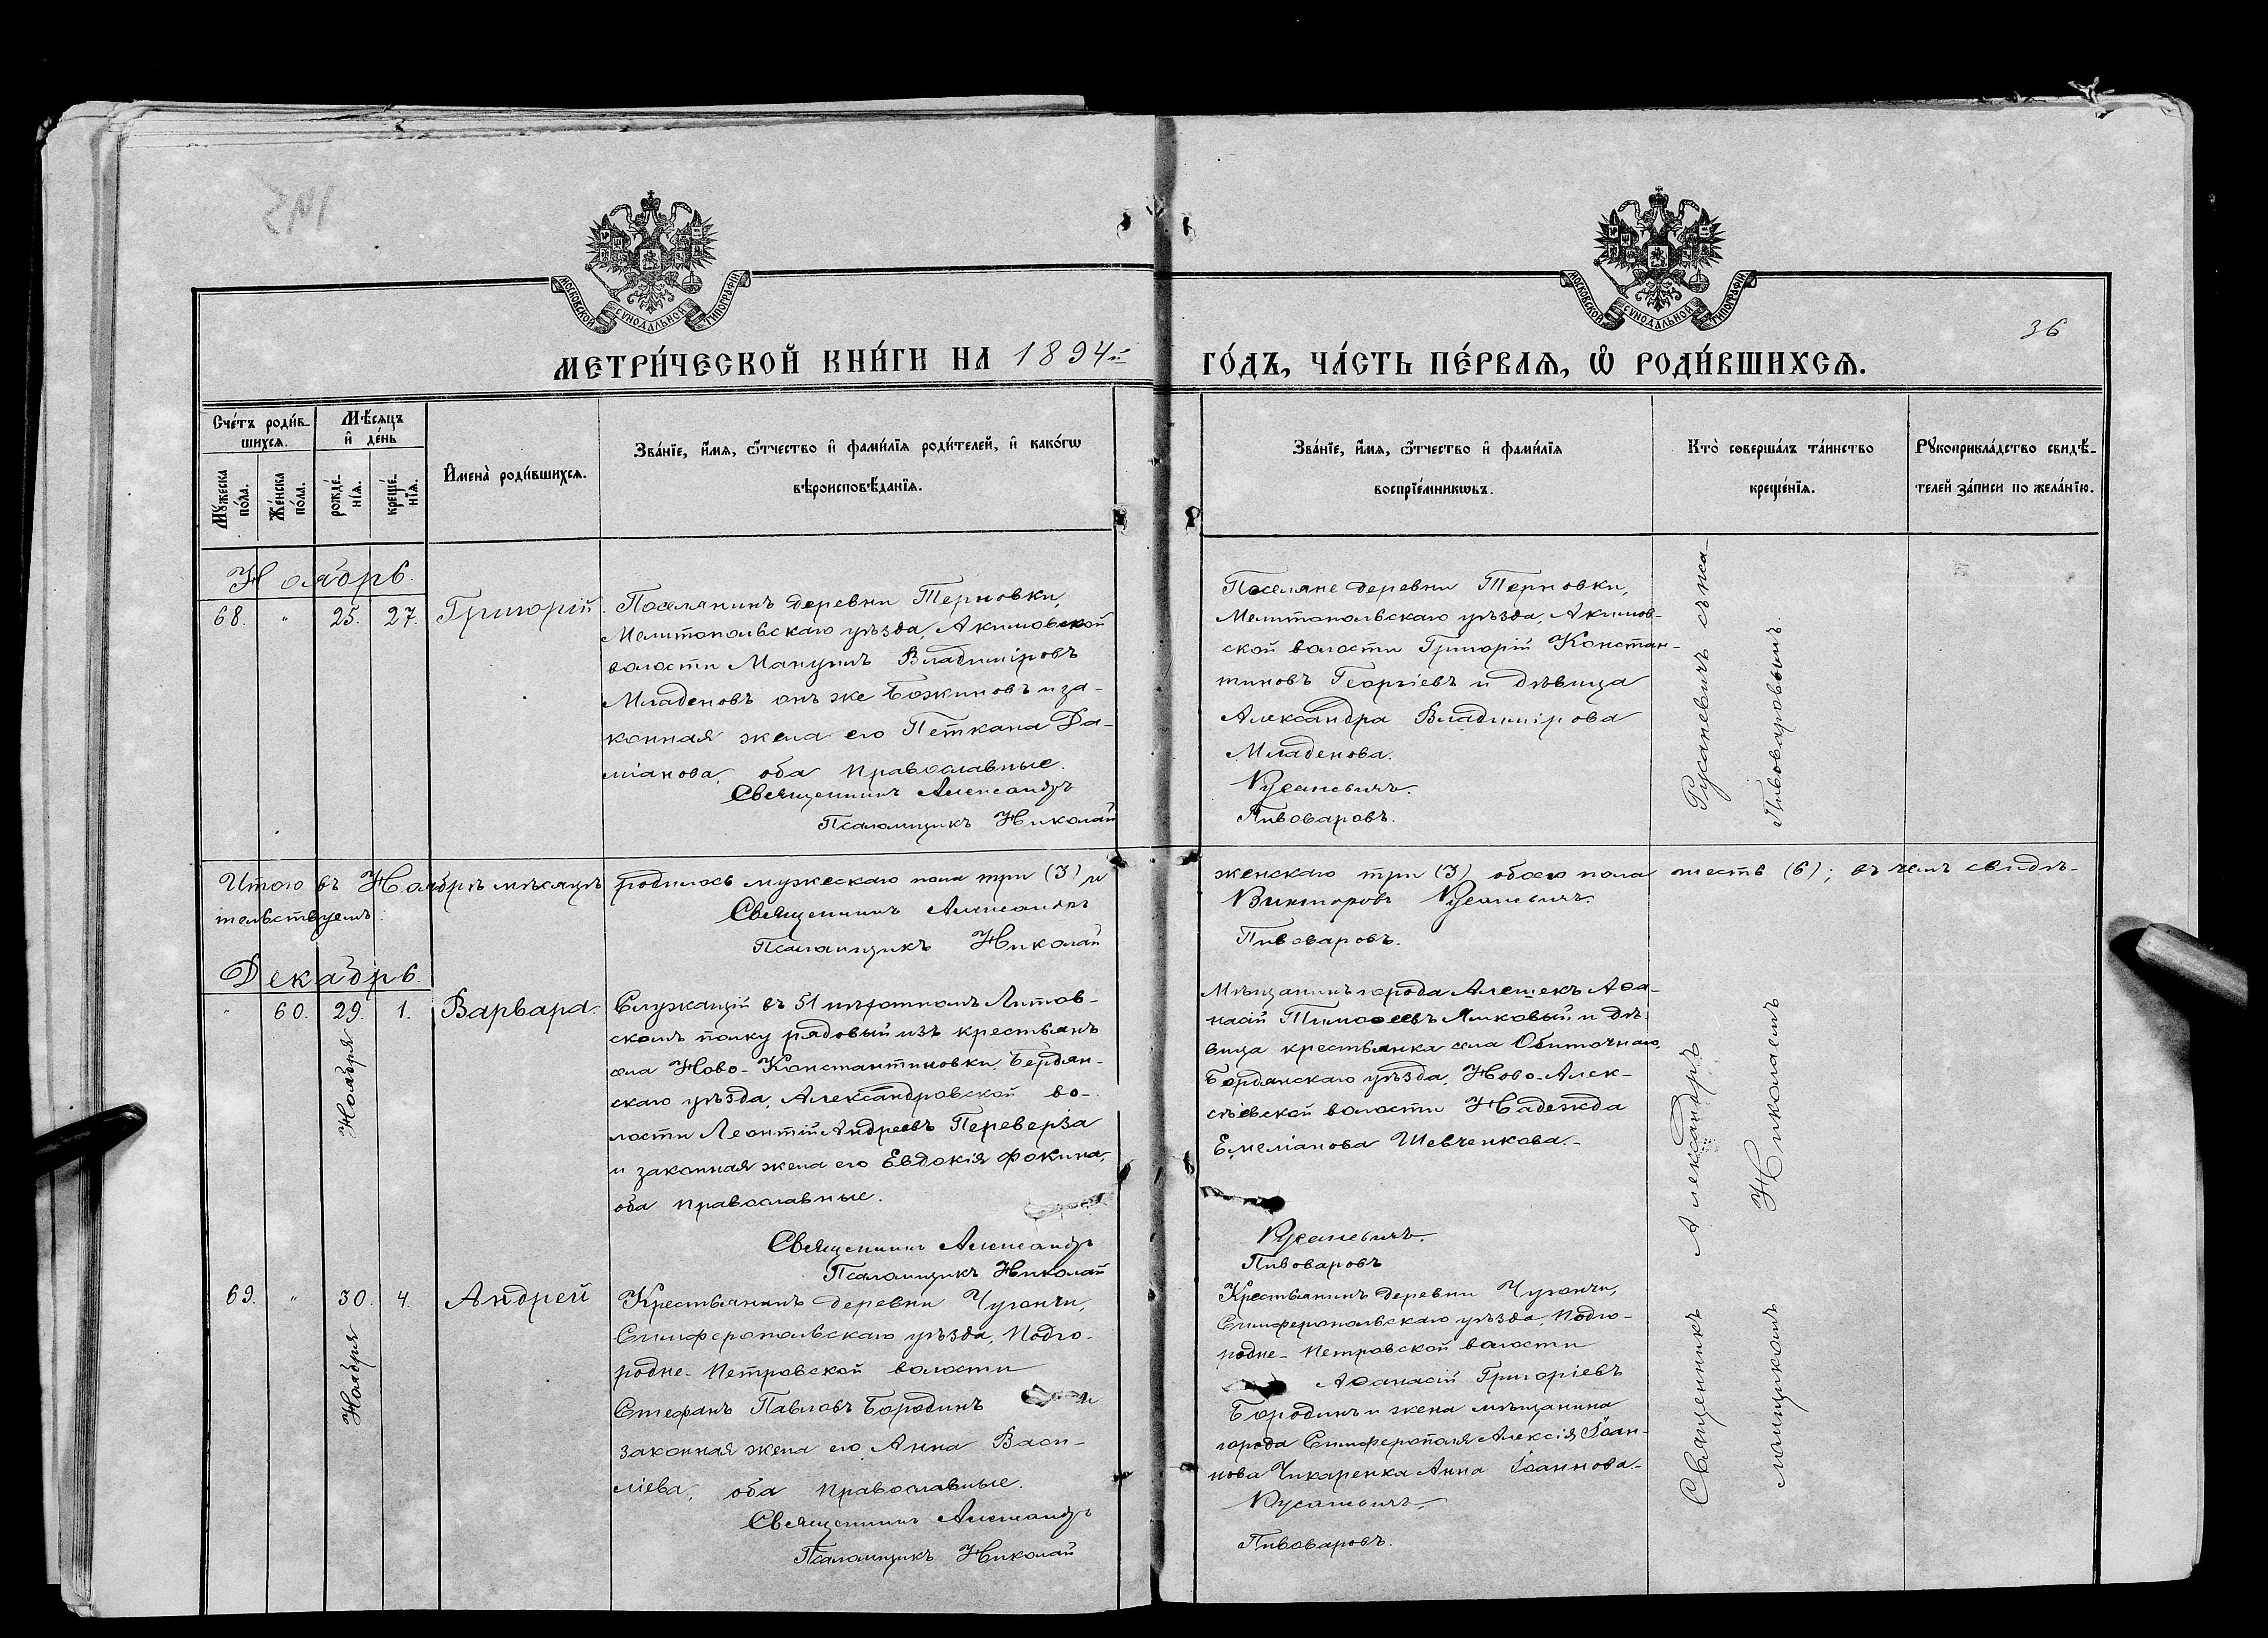 36
МОСКОВСКОЙ СѴНОДАЛЬНОЙ ТИПОГРАФІИ
МОСКОВСКОЙ СѴНОДАЛЬНОЙ ТИПОГРАФІИ
МЕТРИ́ЧЕСКОЙ КНИ́ГИ НА 1894й
ГО́ДЪ, ЧА́СТЬ ПЕ́РВАѦ, Ѡ҆ РОДИ́ВШИХСѦ.
Сче́тъ роди́в-
шихсѧ.
Мꙋ́жеска по́ла.
Же́нска по́ла.
Мѣ́сѧцъ
и҆ де́нь
рожде́-
нїѧ.
креще́-
нїѧ.
И҆мена̀ роди́вшихсѧ.
Зва́нїе, и҆́мѧ, ѻ҆́тчество и҆ фами́лїѧ роди́телей, и҆ како́гѡ
вѣроисповѣ́данїѧ.
Зва́нїе, и҆́мѧ, ѻ҆́тчество и҆ фами́лїѧ
воспрїе́мникѡвъ.
Кто̀ соверша́лъ та́инство
креще́нїѧ.
Рꙋкоприкла́дство свидѣ́-
телей за́писи по жела́нїю.
Ноябрь.
68. " 25. 27. Григорій.
Поселянинъ деревни Терновки,
Мелитопольскаго уѣзда, Акимовской
волости Мануилъ Владиміровъ
Младеновъ онъ же Божиновъ и за-
конная жена его Петкана Да-
міанова, оба православные.
Священникъ Александръ
Псаломщикъ Николай
Поселяне деревни Терновки,
Мелитопольскаго уѣзда, Акимов-
ской волости Григорій Констан-
тиновъ Георгіевъ и дѣвица
Александра Владимірова
Младенова.
Русаневичъ.
Пивоваровъ.
Итого въ Ноябрѣ мѣсяцѣ родилось мужескаго пола три (3) и женскаго три (3) обоего пола шесть (6); въ чемъ свидѣ-
тельствуемъ:
Священникъ Александръ Викторовъ Русаневичъ.
Псаломщикъ Николай Пивоваровъ.
Декабрь.
" 60. 29. Ноября 1. Варвара.
Служащій въ 51 пѣхотномъ Литов-
скомъ полку рядовый изъ крестьянъ
села Ново-Константиновки, Бердян-
скаго уѣзда, Александровской во-
лости Леонтій Андреевъ Переверза
и законная жена его Евдокія Фокина,
оба православные.
Священникъ Александръ
Псаломщикъ Николай
Мѣщанинъ города Алешекъ Аѳа-
насій Тимоѳеевъ и дѣ-
вица крестьянка села Обиточнаго,
Бердянскаго уѣзда, Ново-Алек-
сѣевской волости Надежда
Емеліанова Шевченкова.
Русаневичъ.
Пивоваровъ
69. " 30. Ноября 4. Андрей
Крестьянинъ деревни Чугончи,
Симферопольскаго уѣзда, Подго-
родне-Петровской волости
Стефанъ Павловъ Бородинъ и
законная жена его Анна Васи-
ліева, оба православные.
Священникъ Александръ
Псаломщикъ Николай
Крестьянинъ деревни Чугончи,
Симферопольскаго уѣзда, Подго-
родне-Петровской волости
Аѳанасій Григоріевъ
Бородинъ и жена мѣщанина
города Симферополя Алексія Іоан-
нова Чикаренка Анна Іоаннова.
Русаневичъ.
Пивоваровъ.
Священникъ Александръ Русаневичъ съ пса-
ломщикомъ Николаемъ Пивоваровымъ.